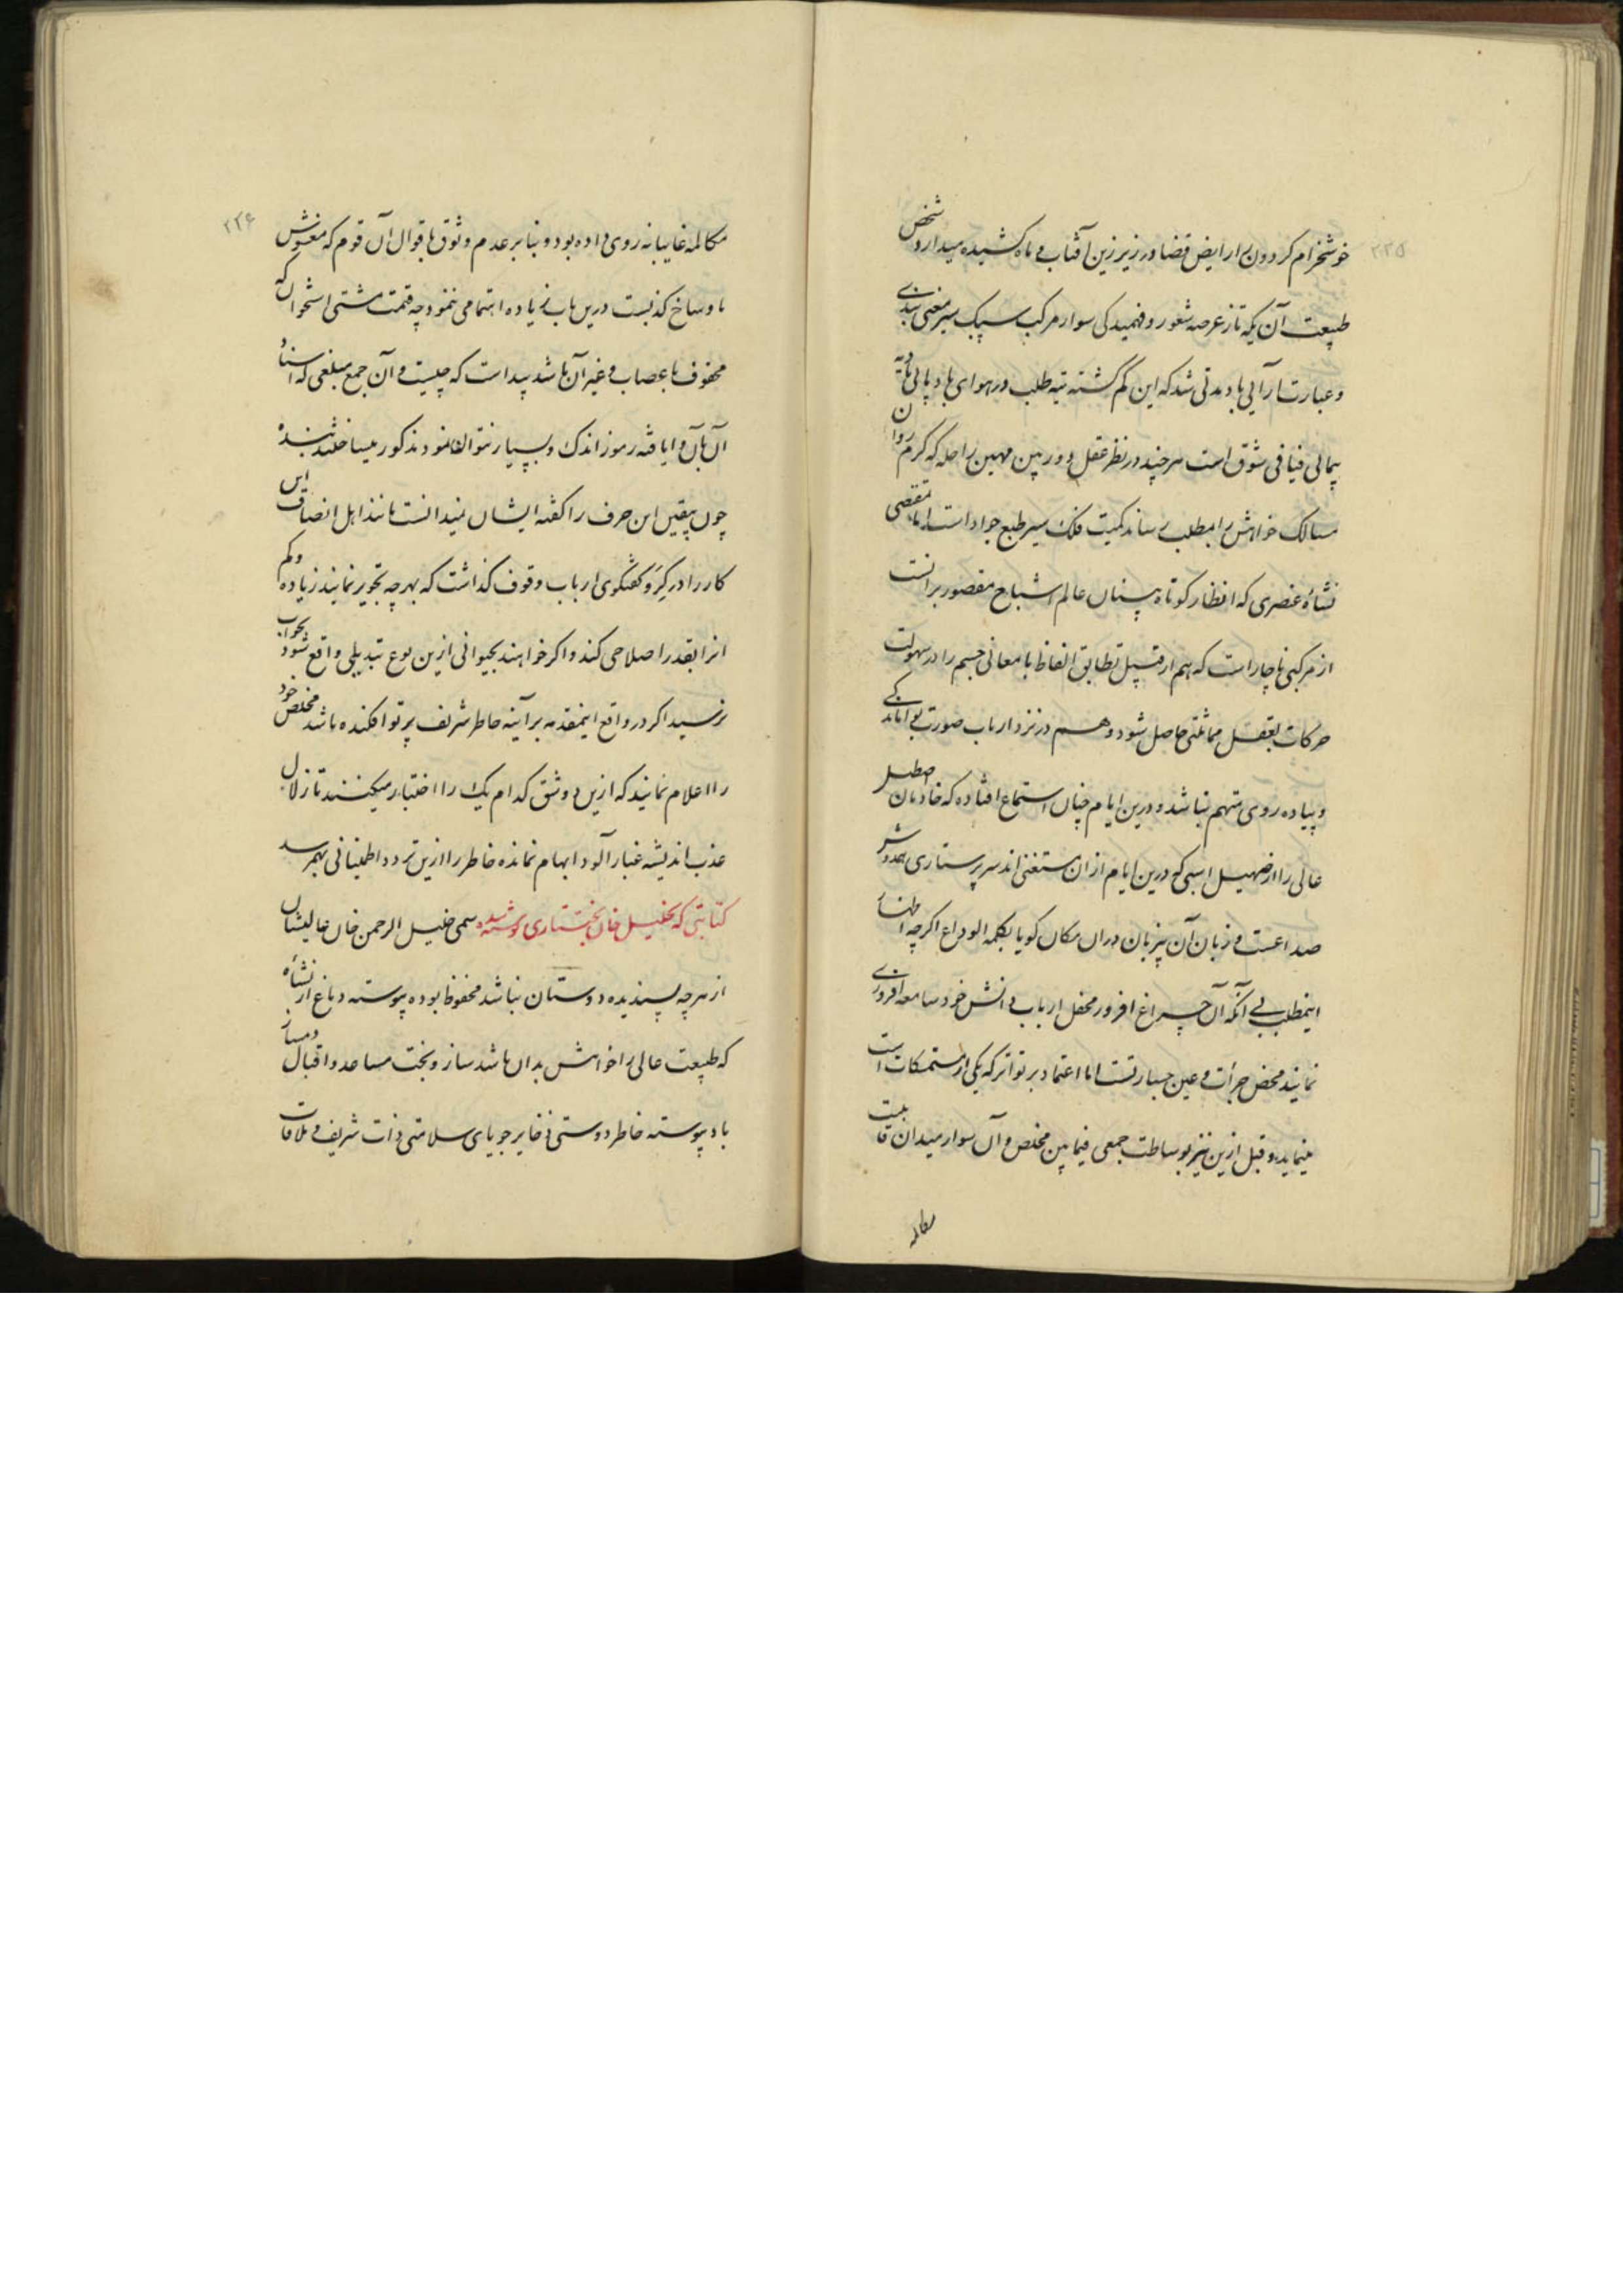 ۲۲۵
خوشخرام کردون را رایض قضا در زیر زین آفتاب و ماه کشیده میدارد شخص
طبیعت آن یکه تاز عرصه شعور و فهمیدکی سوار مرکب سبک سیر معنی بندی
و عبارت آرایی باد مدتی شد که این کم کشته تیه طلب در هوای باد پائی بادیه
پیمائی فیافی شوق است هر چند در نظر عقل دور بین مهین راحله که کرم روان
مسالک خواهش را بمطلب رساند کمیت فلک سیر طبع جواد است اما مقتضی
نشاه عنصری که انظار کوتاه بینان عالم اشباح مقصور بر انست
از مرکبی ناچار است که هم از قبیل تطابق الفاظ با معانی جسم را در سهولت
حرکات بعقل مماثلتی حاصل شود و هم در نزد ارباب صورت
و پیاده روی متهم نباشد و درین ایام چنان استماع افتاده که خادمان اصطبل
عالی را از صهیل اسبی که درین ایام از ان مستغنی اند سر پرستاری همدوش
صداعست و زبان آن بیزبان دران مکان کویا بکلمه الوداع اکرچه اظهار
اینمطلب بی آنکه آن چراغ افروز محفل ارباب دانش خود سامعه افروزی
نمایند محض جرأت و عین جسارتست اما اعتماد بر تواتر که یکی از مستمسکات است
مینماید و قبل ازین نیز بوساطت جمعی فیمابین مخلص و آن سوار میدان قابلیت
مکالمه
۲۲۶
مکالمه غایبانه روی داده بود و بنابر عدم وثوق باقوال آن قوم که مغشوش
باوساخ کذبست درین باب زیاده اهتمامی ننمود چه قیمت مشتی استخوان که
محفوف باعصاب و غیر آن باشد پیداست که چیست و آن جمع مبلغی که اسناد
آن بآن دانای دقیقه رموز اندک و بسیار نتوان نمود مذکور میساختند بنده
چون بیقین این حرف را کفته ایشان نمیدانست مانند اهل انصاف این
کار را در کرو کفتکوی ارباب وقوف کذاشت که بهر چه تجویز نمایند زیاده و کم
انرا بقدر اصلاحی کند و اکر خواهند بحیوانی ازین نوع تبدیلی واقع شود بجواب
نرسید اکر در واقع اینمقدمه بر آینه خاطر شریف پرتو افکنده باشد مخلص خود
را اعلام نمایند که ازین دو شق کدام یک را اختیار میکنند تا زلال
عذب اندیشه غبار آلود ابهام نمانده خاطر را ازین تردد اطمینانی بهم رسد
کتابتی که بخلیل خان بختیاری نوشته شده سمی خلیل الرحمن خان عالیشان
از هر چه پسندیده دوستان نباشد محفوظ بوده پیوسته دماغ از نشاه
که طبیعت عالی را خواهش بدان باشد ساز و بخت مساعد و اقبال دمساز
باد پیوسته خاطر دوستی ذخایر جویای سلامتی ذات شریف و ملاقات